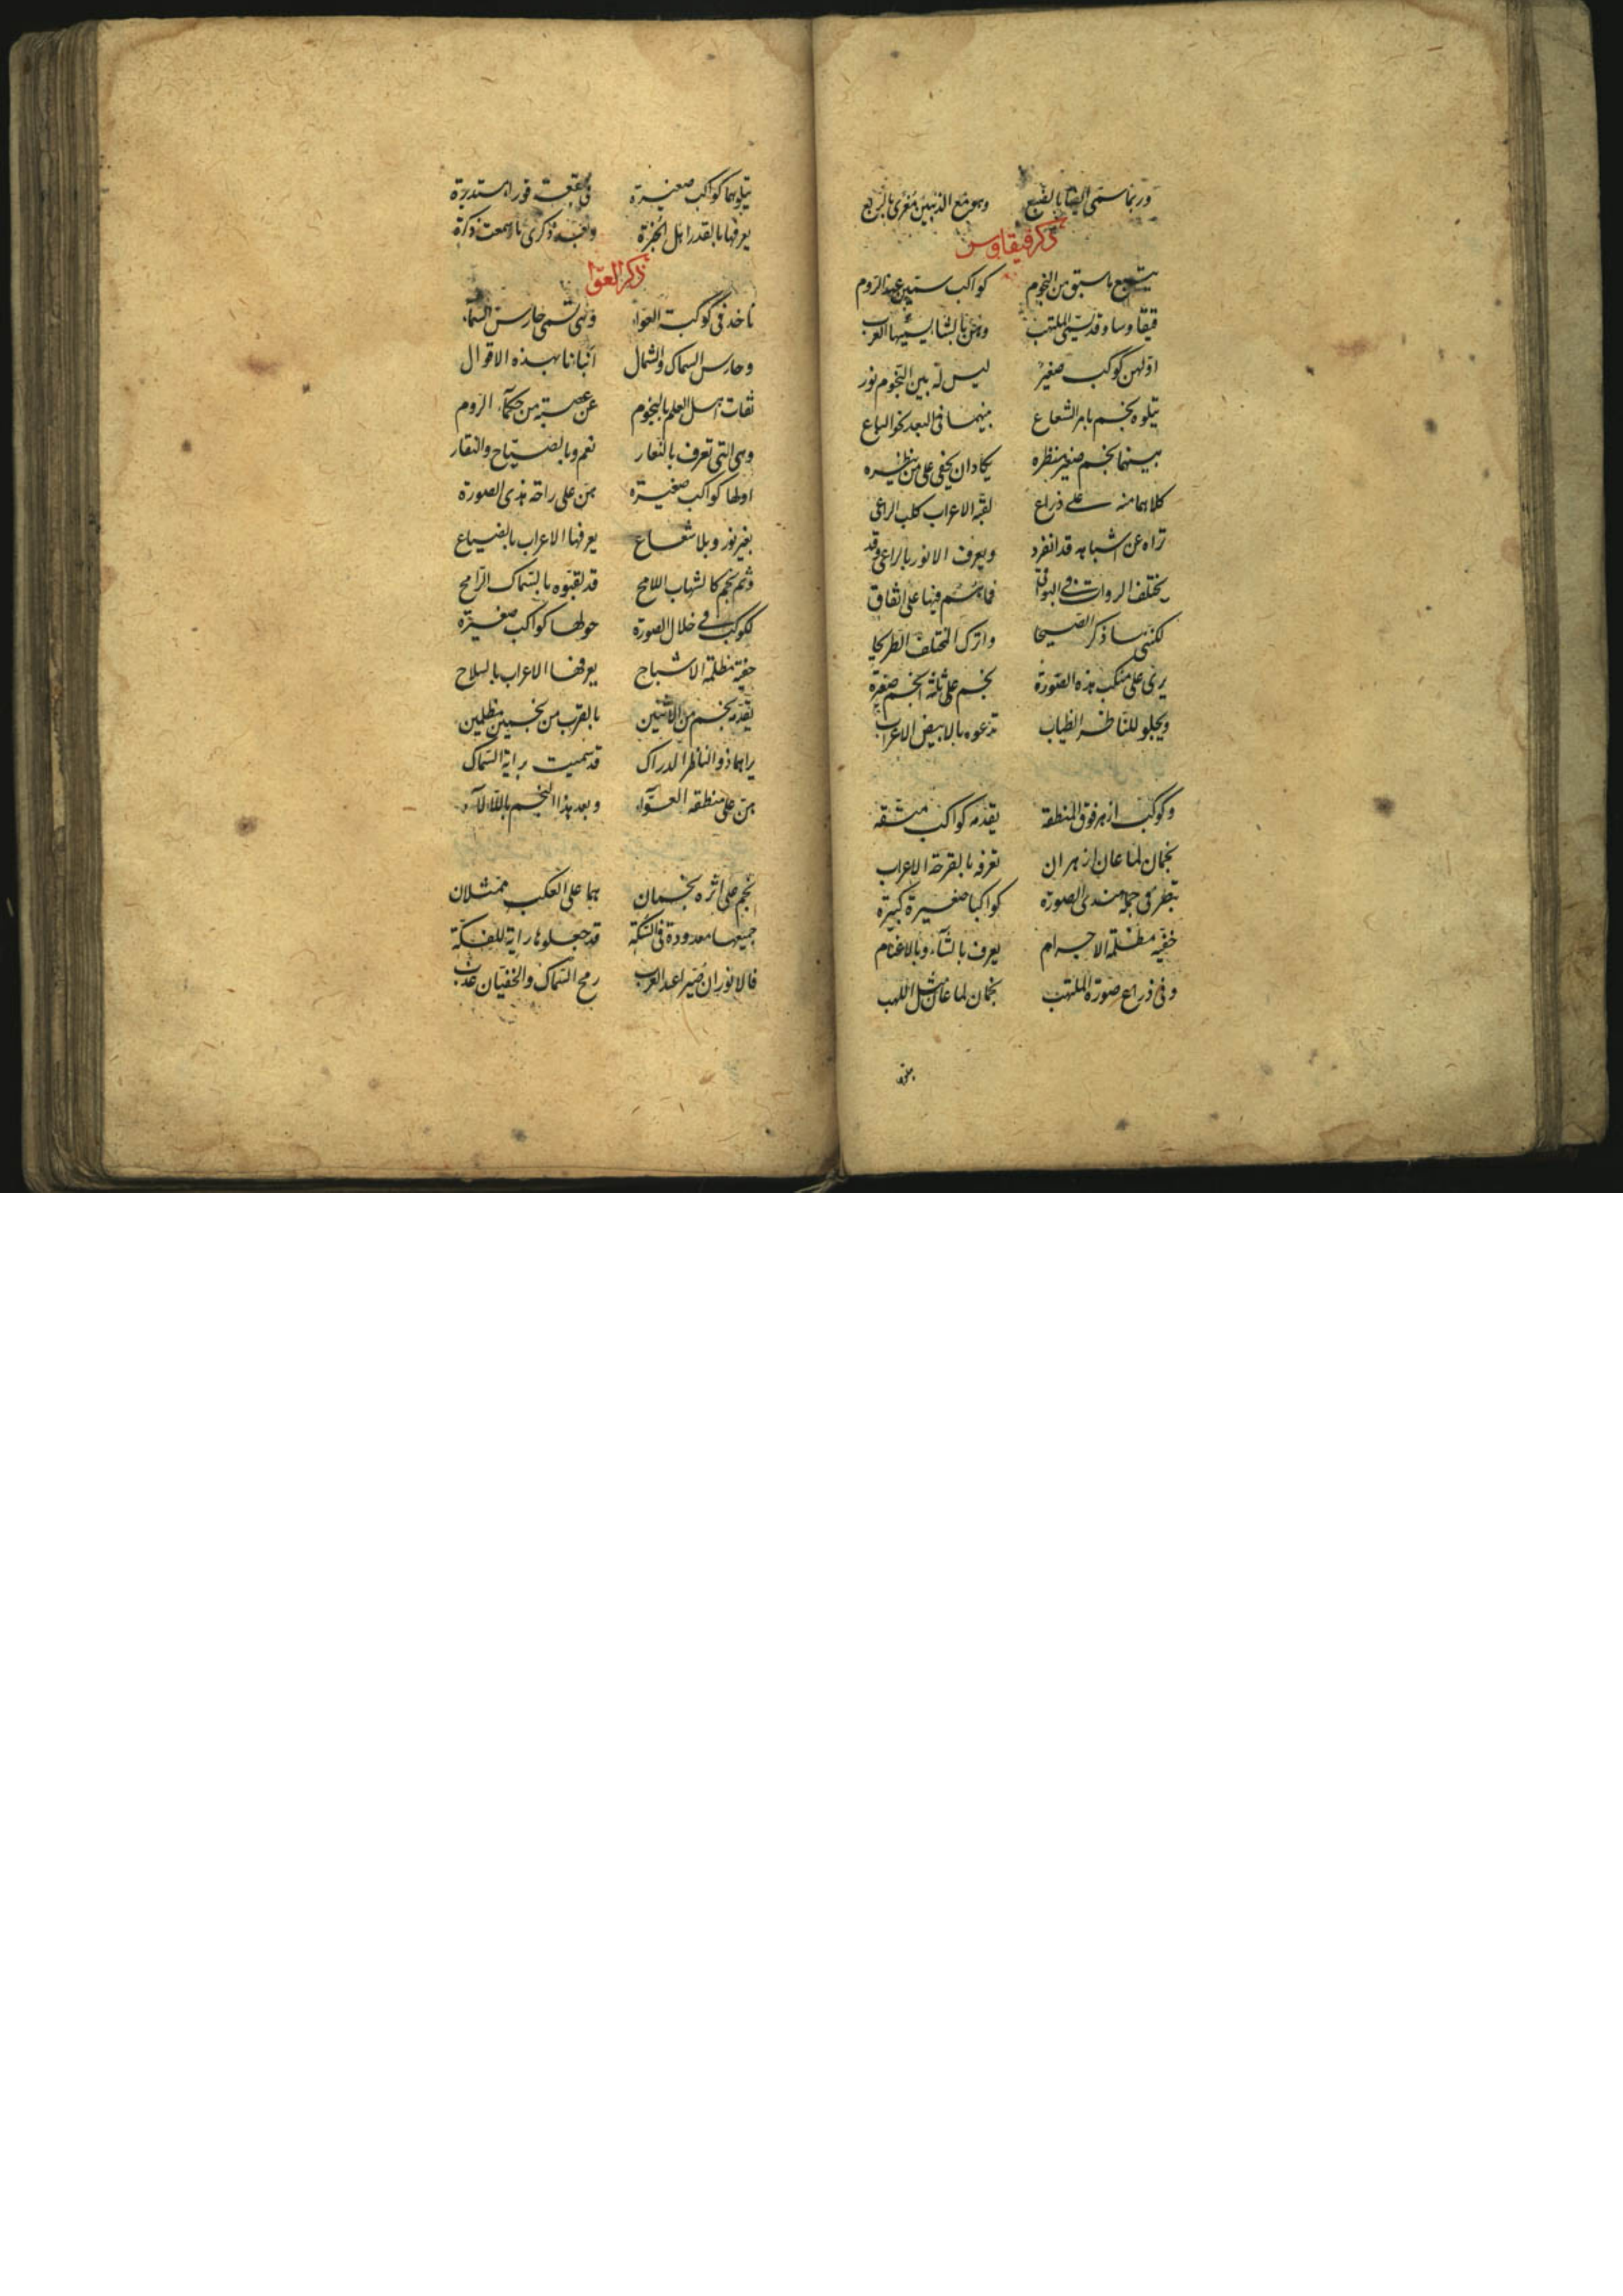 وربما سمى ايضا بالضبع وهو مع الذيبين مغرى بالربع
ذكر قيقاوس
يتبع ما سبق من النجوم كواكب ستين عند الروم
قيقاوسا وقد يسمى الملتهب وهن بالشا يسميها العرب
اولهن كوكب صغير ليس له بين النجوم نور
يتلوه نجم باهر الشعاع بينهما فى البعد نحو الباع
بينهما نجم صغير منظره يكاد ان يخفى على من ينظره
كلاهما منه على ذراع لقبه الاعراب كلب الراعى
تراه عن اشباهه قد انفرد ويعرف الانور بالراعى وقد
يختلف الروات فى البواقى فما هم فيها على اتفاق
لكننى ساذكر الصحيحا واترك المختلف الطريحا
يرى على منكب هذه الصورة نجم على ثلثة انجم صغيرة
ويجلو للناظر الظياب تدعوه بالابيض الاعراب
وكوكب ازهر فوق المنطقة يقدمه كواكب متسقه
نجمان لما عان ازهران تعرفه بالقرحة الاعراب
تنظر فى جملة هذى الصورة كواكبا صغيرة كبيرة
خفيه مظلمة الاجرام يعرف بالشاء وبالاغنام
وفى ذراع صورة الملتهب نجمان لما عان مثل اللهب
يتلوهما كواكب صغيرة فى بقعة قورا مستديرة
يعرفها بالقدر اهل الخبرة وانبه ذكرى ما سمعت ذكره
ذكر العوا
ناخذ فى كوكبة العواء وهى تسمى حارس السماء
وحارس السماك والشمال انبانا بهذه الاقوال
ثقات اهل العلم بالنجوم عن عصبة من حكماء الروم
وهى التى تعرف بالنعار نعم وبالصياح والنقار
اولها كواكب صغيرة هن على راحة هذى الصورة
بغير نور وبلا شعاع يعرفها الاعراب بالضباع
وثم نجم كالشهاب اللامح قد لقبوه بالسماك الرامح
ككوكب فى خلال الصورة حولها كواكب صغيرة
خفية مظلمة الاشباح يعرفها الاعراب بالسلاح
يقدمه نجم من الاثنين بالقرب من نجمين مظلمين
يراهما ذو الناظر الدراك قد سميت راية السماك
هن على منطقة العواء وبعد هذا النجم باللالاء
نجم على اثره نجمان هما على العكب ممتثلان
جميعها معدودة فى السكة قد جعلوها راية للفكة
فالانوران صيرا عند العرب رمح السماك والخفيان عذب